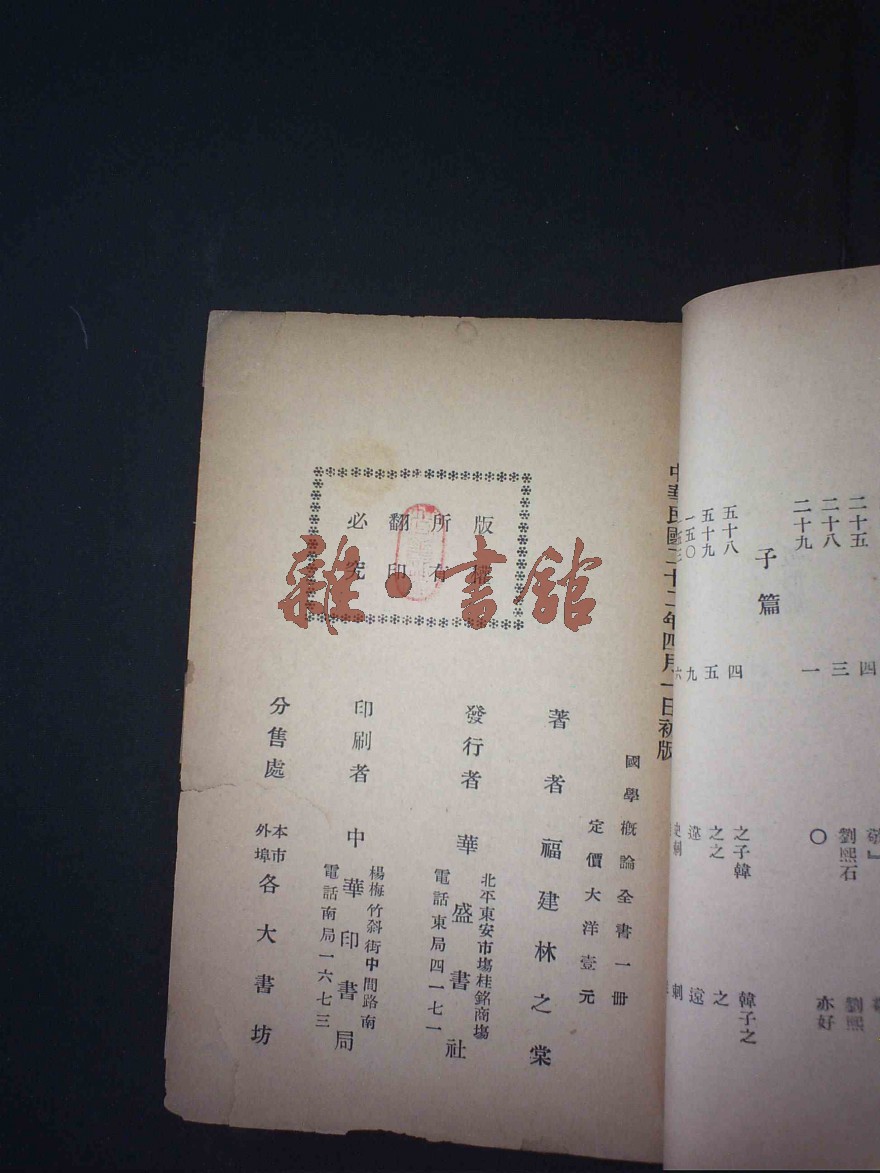 中華民國二十二年四月一日初版
國學概論全書一冊
定價大洋壹元
著者 福建林之棠
發行者 華盛書社
北平東安市場桂銘商場
電話東局四一七一
印刷者 中華印書局
楊梅竹斜街中間路南
電話南局一六七三
分售處 本市外埠 各大書坊
版權
所有
翻印
必究
雜·書館
二十五
二十八
二十九
子篇
五十八
五十九
一五〇
四
三
一
四
五
九
六
劉熙石
〇
之子韓
之之
遠
史刺
劉熙
亦好
韓子之
之
遠
刺